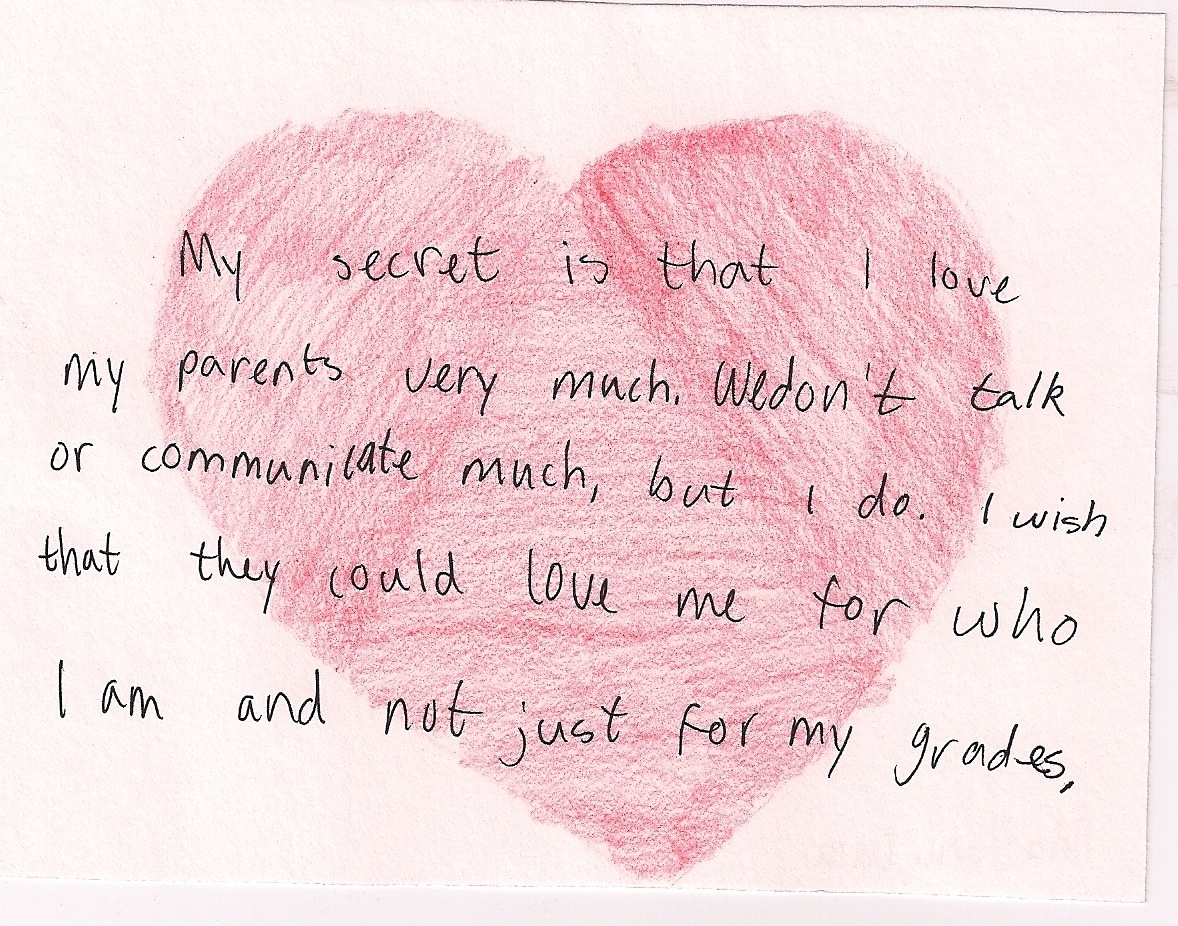 My secret is that I love
my parents very much. Wedon't talk
or communicate much, but I do. I wish
that they could love me for who
I am and not just for my grades,